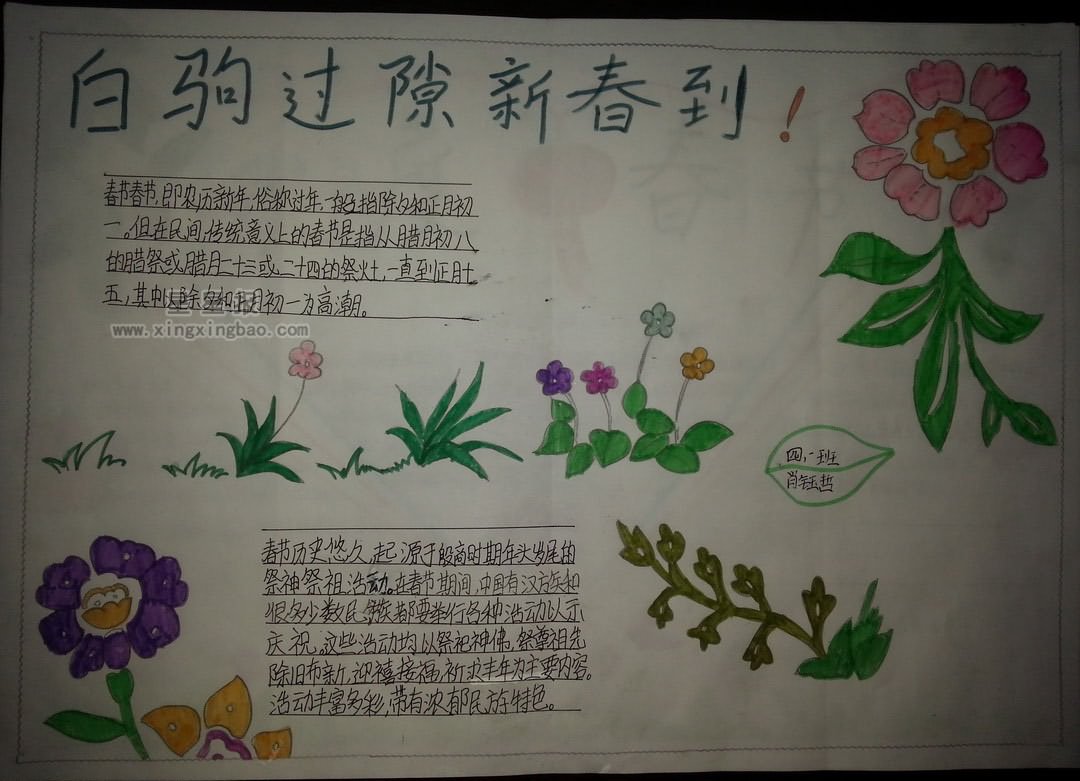 白驹过隙新春到！
春节春节，即农历新年，俗称过年，一般指除夕和正月初
一。但在民间，传统意义上的春节是指从腊月初八
的腊祭或腊月二十三或二十四的祭灶，一直到正月十
五，其中以除夕和正月初一为高潮。
www.xingxingbao.com
四、一班
肖钰哲
春节历史悠久，起源于殷商时期年头岁尾的
祭神祭祖活动。在春节期间，中国有汉族和
很多少数民族都要举行各种活动以示
庆祝。这些活动均以祭祀神佛，祭尊祖先
除旧布新，迎禧接福，祈求丰年为主要内容。
活动丰富多彩，带有浓郁民族特色。